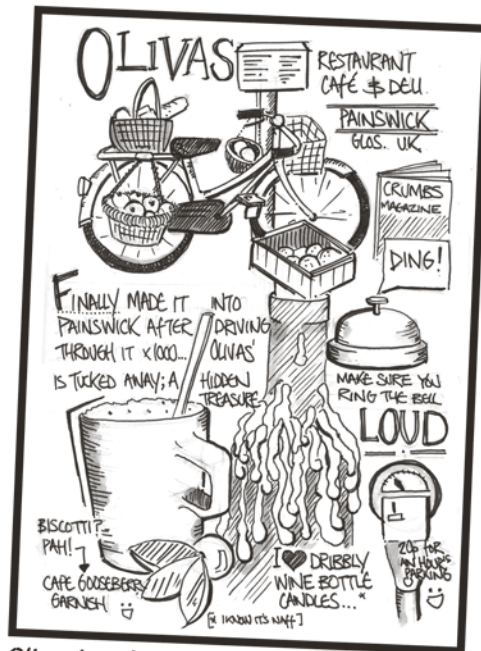 OLIVAS
RESTAURANT
CAFÉ & DELI
PAINSWICK
GLOS. UK
CRUMBS
MAGAZINE
DING!
FINALLY MADE IT INTO
PAINSWICK AFTER DRIVING
THROUGH IT x1000... OLIVAS'
IS TUCKED AWAY; A HIDDEN
TREASURE
MAKE SURE YOU
RING THE BELL
LOUD
BISCOTTI?..
PAH!
CAPE GOOSEBERRY
GARNISH
I ♥ DRIBBLY
WINE BOTTLE
CANDLES...*
[* I KNOW IT'S NAFF]
20p FOR
AN HOUR'S
PARKING